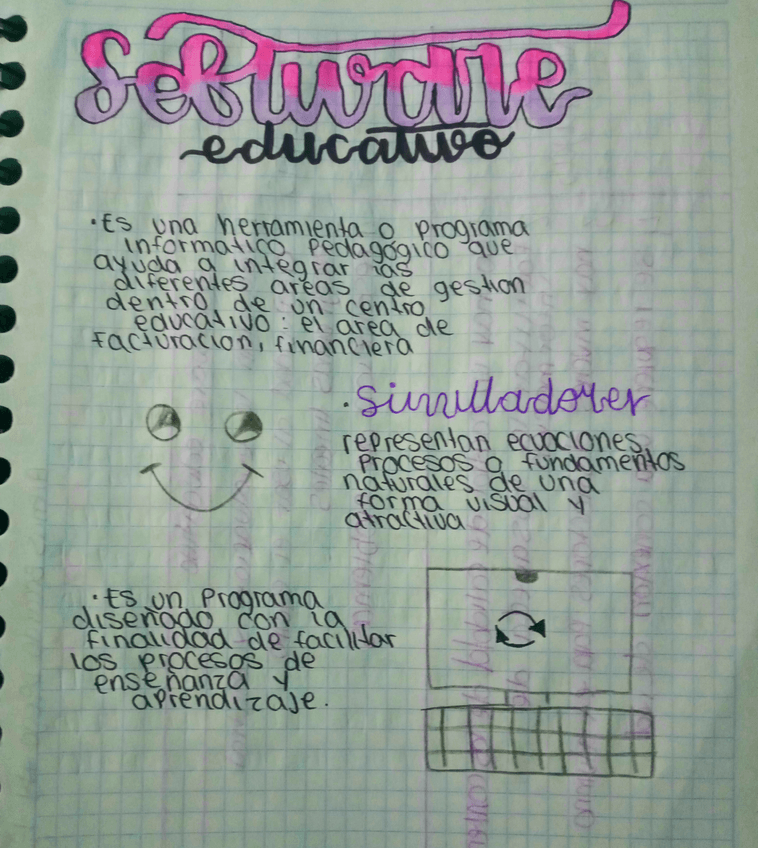 Software
educativo
·Es una herramienta o programa
informatico pedagógico que
ayuda a integrar las
diferentes areas de gestion
dentro de un centro
educativo: el area de
facturacion, financiera
·simulladores
representan ecuaciones,
procesos o fundamentos
naturales de una
forma visual y
atractiva
·Es un programa
diseñado con la
finalidad de facilitar
los procesos de
enseñanza y
aprendizaje.